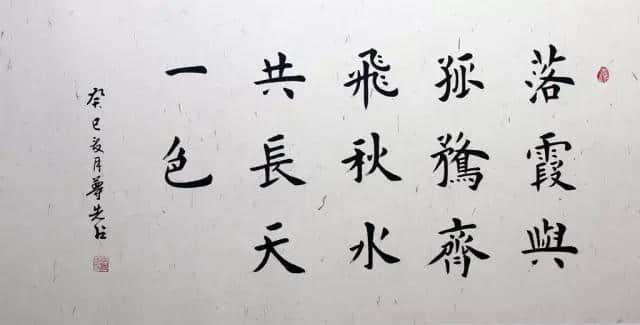 落霞與
孤鶩齊
飛秋水
共長天
一色
癸巳夏月尊先書